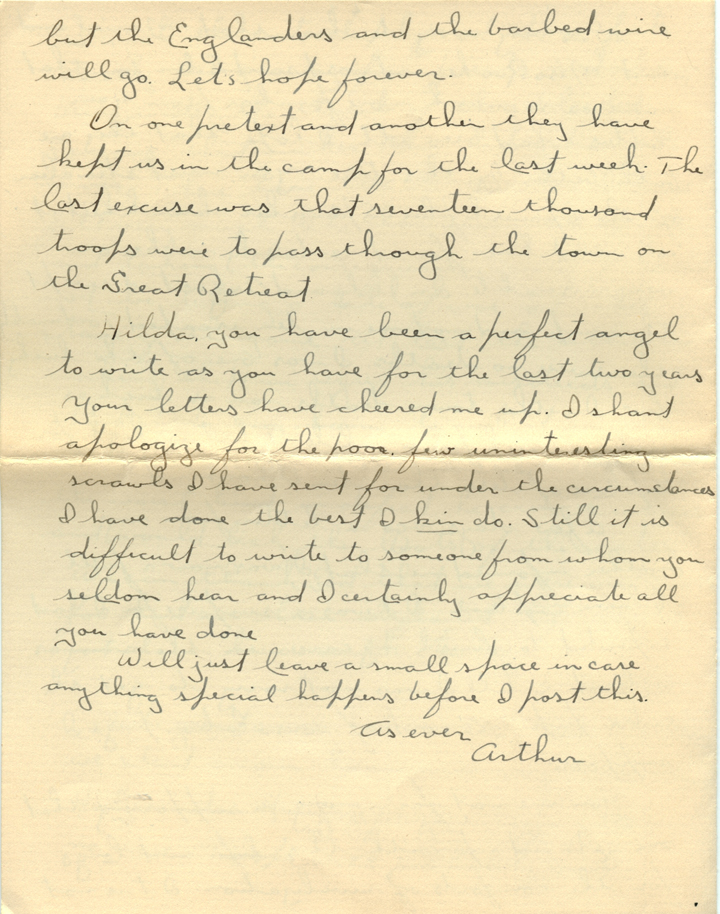 but the Englanders and the barbed wire
will go. Let's hope forever.
On one pretext and another they have
kept us in the camp for the last week. The
last excuse was that seventeen thousand
troops were to pass through the town on
the Great Retreat
Hilda, you have been a perfect angel
to write as you have for the last two years
Your letters have cheered me up. I shant
apologize for the poor, few uninteresting
scrawls I have sent for under the circumstances
I have done the best I kin do. Still it is
difficult to write to someone from whom you
seldom hear and I certainly appreciate all
you have done
Will just leave a small space in case
anything special happens before I post this.
As ever
Arthur